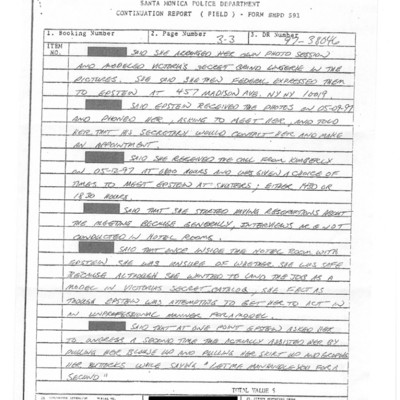 SANTA MONICA POLICE DEPARTMENT
CONTINUATION REPORT ( FIELD ) - FORM SMPD 593
1. Booking Number 2. Page Number 3. DR Number
3-3 97-38046
ITEM NO.
SAID SHE ARRANGED HER OWN PHOTO SESSION
AND MODELED VICTORIA'S SECRET BRAND LINGERIE IN THE
PICTURES. SHE SAID SHE THEN FEDERAL EXPRESSED THEM
TO EPSTEIN AT 457 MADISON AVE, NY NY
SAID EPSTEIN RECEIVED THE PHOTOS ON
AND PHONED HER, ASKING TO MEET HER, AND TOLD
HER THAT HIS SECRETARY WOULD CONTACT HER AND MAKE
AN APPOINTMENT.
SAID SHE RECEIVED THE CALL FROM KIMBERLY
ON AT HOURS AND WAS GIVEN A CHOICE OF
TIMES TO MEET EPSTEIN AT SHUTTERS; EITHER OR
1830 HOURS.
SAID THAT SHE STARTED HAVING RESERVATIONS ABOUT
THE MEETING BECAUSE GENERALLY, INTERVIEWS ARE NOT
CONDUCTED IN HOTEL ROOMS.
SAID THAT ONCE INSIDE THE HOTEL ROOM WITH
EPSTEIN SHE WAS UNSURE OF WHETHER SHE WAS SAFE
BECAUSE ALTHOUGH SHE WANTED TO LAND THE JOB AS A
MODEL IN VICTORIA'S SECRET CATALOG, SHE FELT AS
THOUGH EPSTEIN WAS ATTEMPTING TO GET HER TO ACT IN
AN UNPROFESSIONAL MANNER FOR A MODEL.
SAID THAT AT ONE POINT EPSTEIN ASKED HER
TO UNDRESS A SECOND TIME AND ACTUALLY ASSISTED HER BY
PULLING HER BLOUSE UP AND PULLING HER SKIRT UP AND
HER BUTTOCKS WHILE SAYING "LET ME MANHANDLE YOU FOR A
SECOND"
TOTAL VALUE $